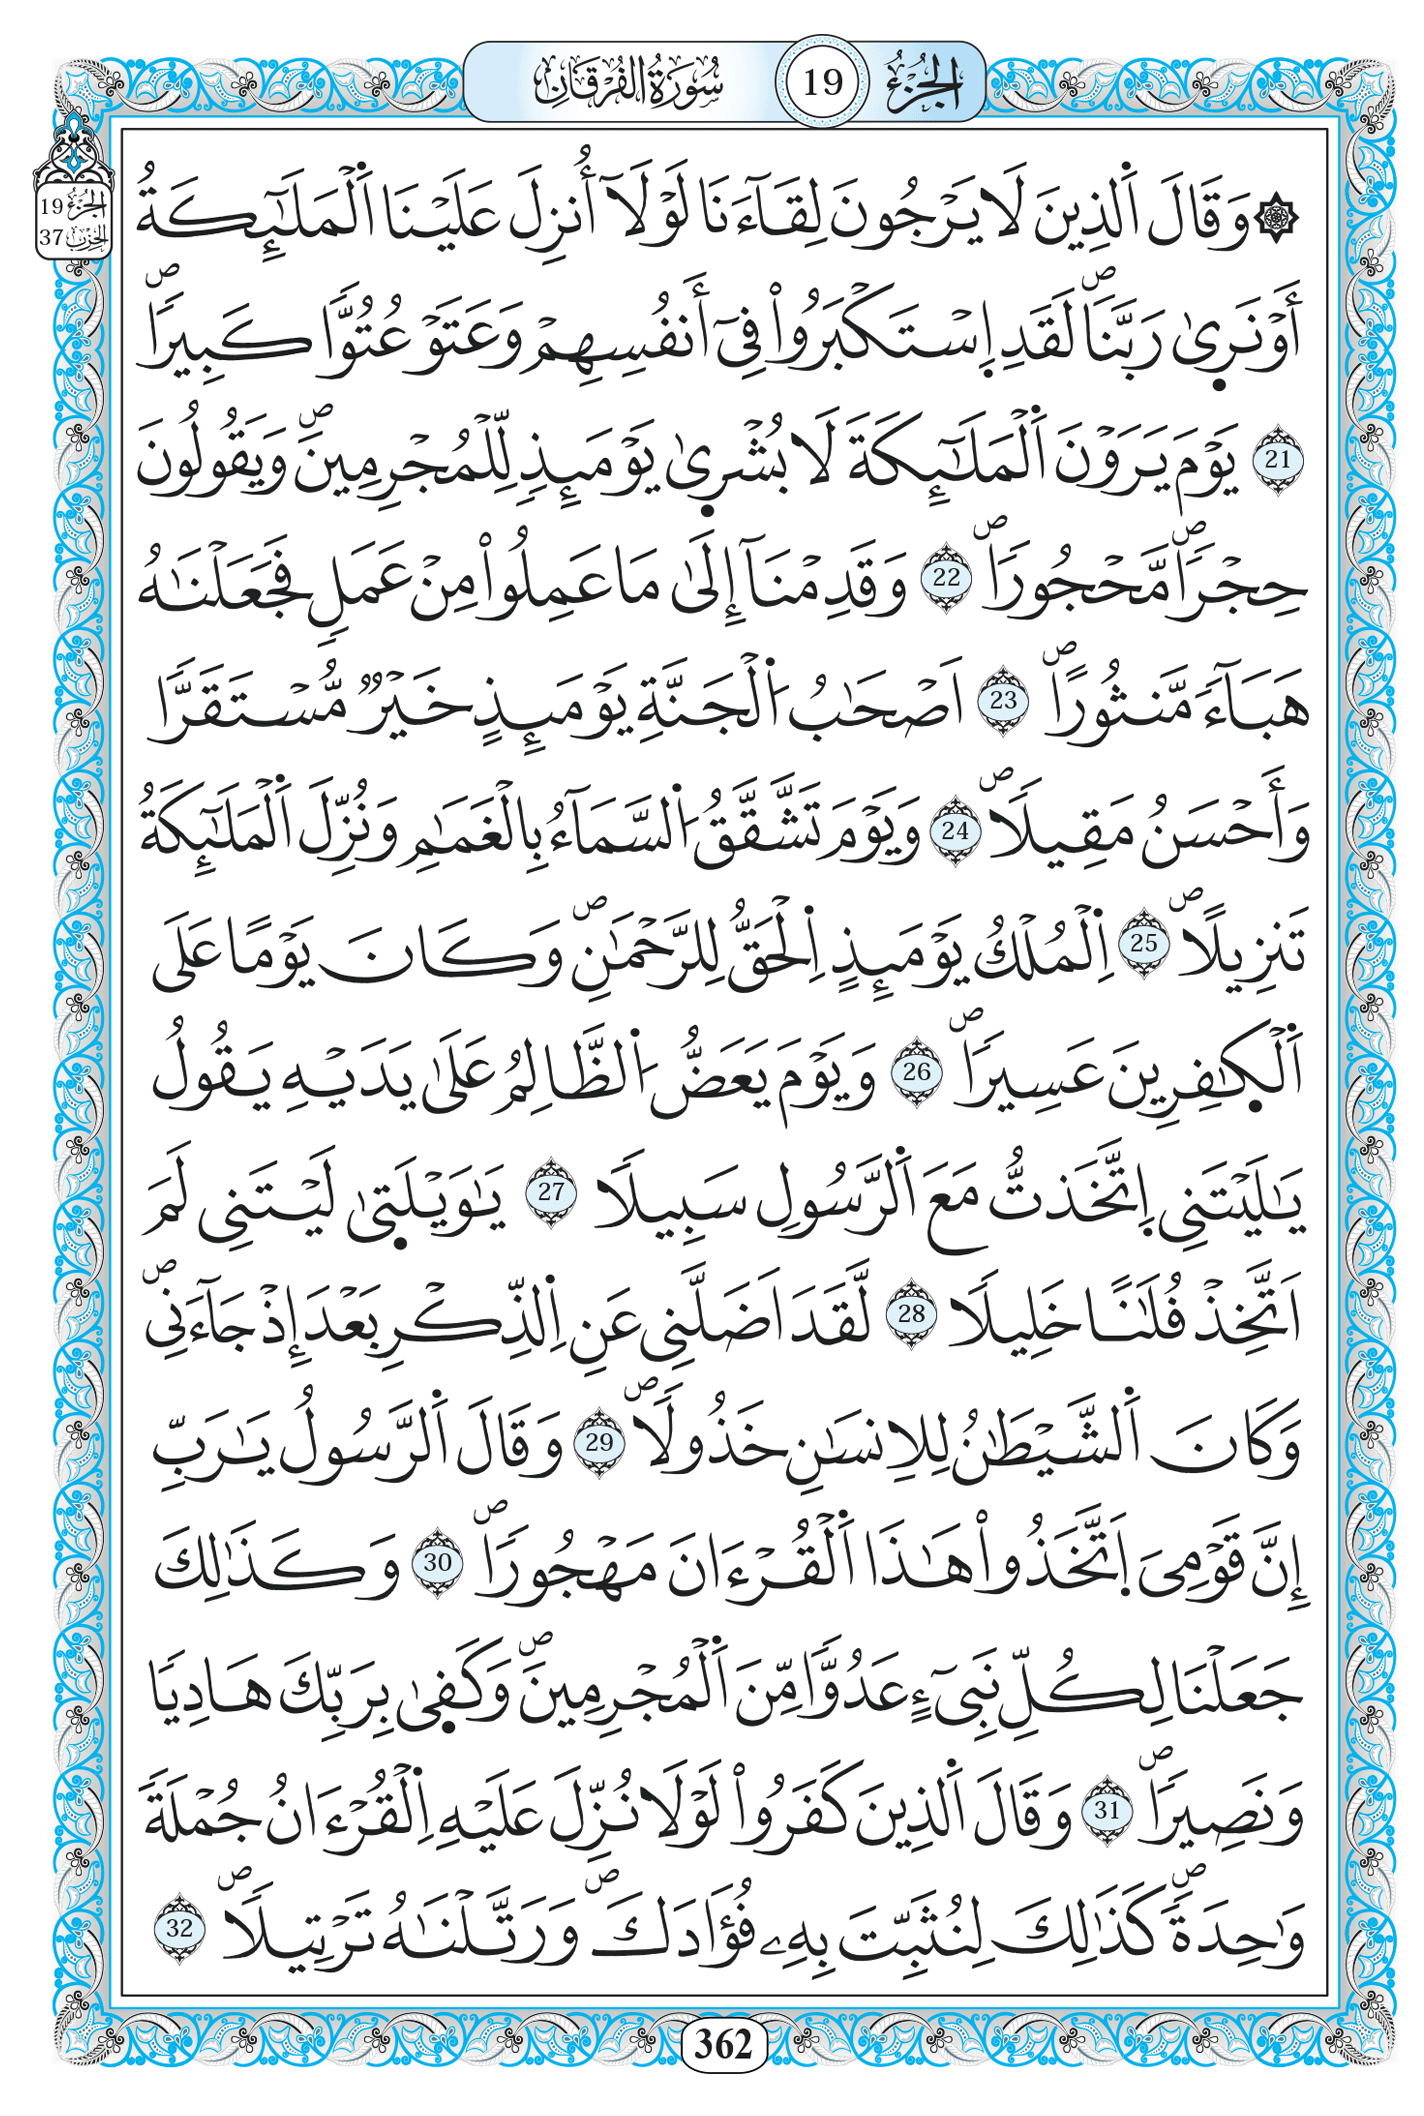 الجزء 19 سورة الفرقان
الجزء 19
الحزب 37
۞ وَقَالَ اَ۬لذِينَ لَا يَرْجُونَ لِقَآءَنَا لَوْلَآ أُنزِلَ عَلَيْنَا اَ۬لْمَلَٰٓئِكَةُ
أَوْ نَر۪ىٰ رَبَّنَاۖ لَقَدِ اِ۪سْتَكْبَرُواْ فِےٓ أَنفُسِهِمْ وَعَتَوْ عُتُوّاٗ كَبِيراٗۖ
21 يَوْمَ يَرَوْنَ اَ۬لْمَلَٰٓئِكَةَ لَا بُشْر۪ىٰ يَوْمَئِذٖ لِّلْمُجْرِمِينَۖ وَيَقُولُونَ
حِجْراٗ مَّحْجُوراٗۖ 22 وَقَدِمْنَآ إِلَىٰ مَا عَمِلُواْ مِنْ عَمَلٖ فَجَعَلْنَٰهُ
هَبَآءٗ مَّنثُوراًۖ 23 اَصْحَٰبُ اُ۬لْجَنَّةِ يَوْمَئِذٍ خَيْرٞ مُّسْتَقَرّاٗ
وَأَحْسَنُ مَقِيلاٗۖ 24 وَيَوْمَ تَشَّقَّقُ اُ۬لسَّمَآءُ بِالْغَمَٰمِ وَنُزِّلَ اَ۬لْمَلَٰٓئِكَةُ
تَنزِيلاًۖ 25 اِ۬لْمُلْكُ يَوْمَئِذٍ اِ۬لْحَقُّ لِلرَّحْمَٰنِۖ وَكَانَ يَوْماً عَلَى
اَ۬لْكٰ۪فِرِينَ عَسِيراٗۖ 26 وَيَوْمَ يَعَضُّ اُ۬لظَّالِمُ عَلَىٰ يَدَيْهِ يَقُولُ
يَٰلَيْتَنِے اِ۪تَّخَذتُّ مَعَ اَ۬لرَّسُولِ سَبِيلاٗ 27 يَٰوَيْلَت۪ىٰ لَيْتَنِے لَمَ
اَتَّخِذْ فُلَٰناً خَلِيلاٗ 28 لَّقَدَ اَضَلَّنِے عَنِ اِ۬لذِّكْرِ بَعْدَ إِذْ جَآءَنِےۖ
وَكَانَ اَ۬لشَّيْطَٰنُ لِلِانسَٰنِ خَذُولاٗۖ 29 وَقَالَ اَ۬لرَّسُولُ يَٰرَبِّ
إِنَّ قَوْمِيَ اَ۪تَّخَذُواْ هَٰذَا اَ۬لْقُرْءَانَ مَهْجُوراٗۖ 30 وَكَذَٰلِكَ
جَعَلْنَا لِكُلِّ نَبِےٓءٍ عَدُوّاٗ مِّنَ اَ۬لْمُجْرِمِينَۖ وَكَف۪ىٰ بِرَبِّكَ هَادِياٗ
وَنَصِيراٗۖ 31 وَقَالَ اَ۬لذِينَ كَفَرُواْ لَوْلَا نُزِّلَ عَلَيْهِ اِ۬لْقُرْءَانُ جُمْلَةٗ
وَٰحِدَةٗۖ كَذَٰلِكَ لِنُثَبِّتَ بِهِۦ فُؤَادَكَۖ وَرَتَّلْنَٰهُ تَرْتِيلاٗۖ 32
362